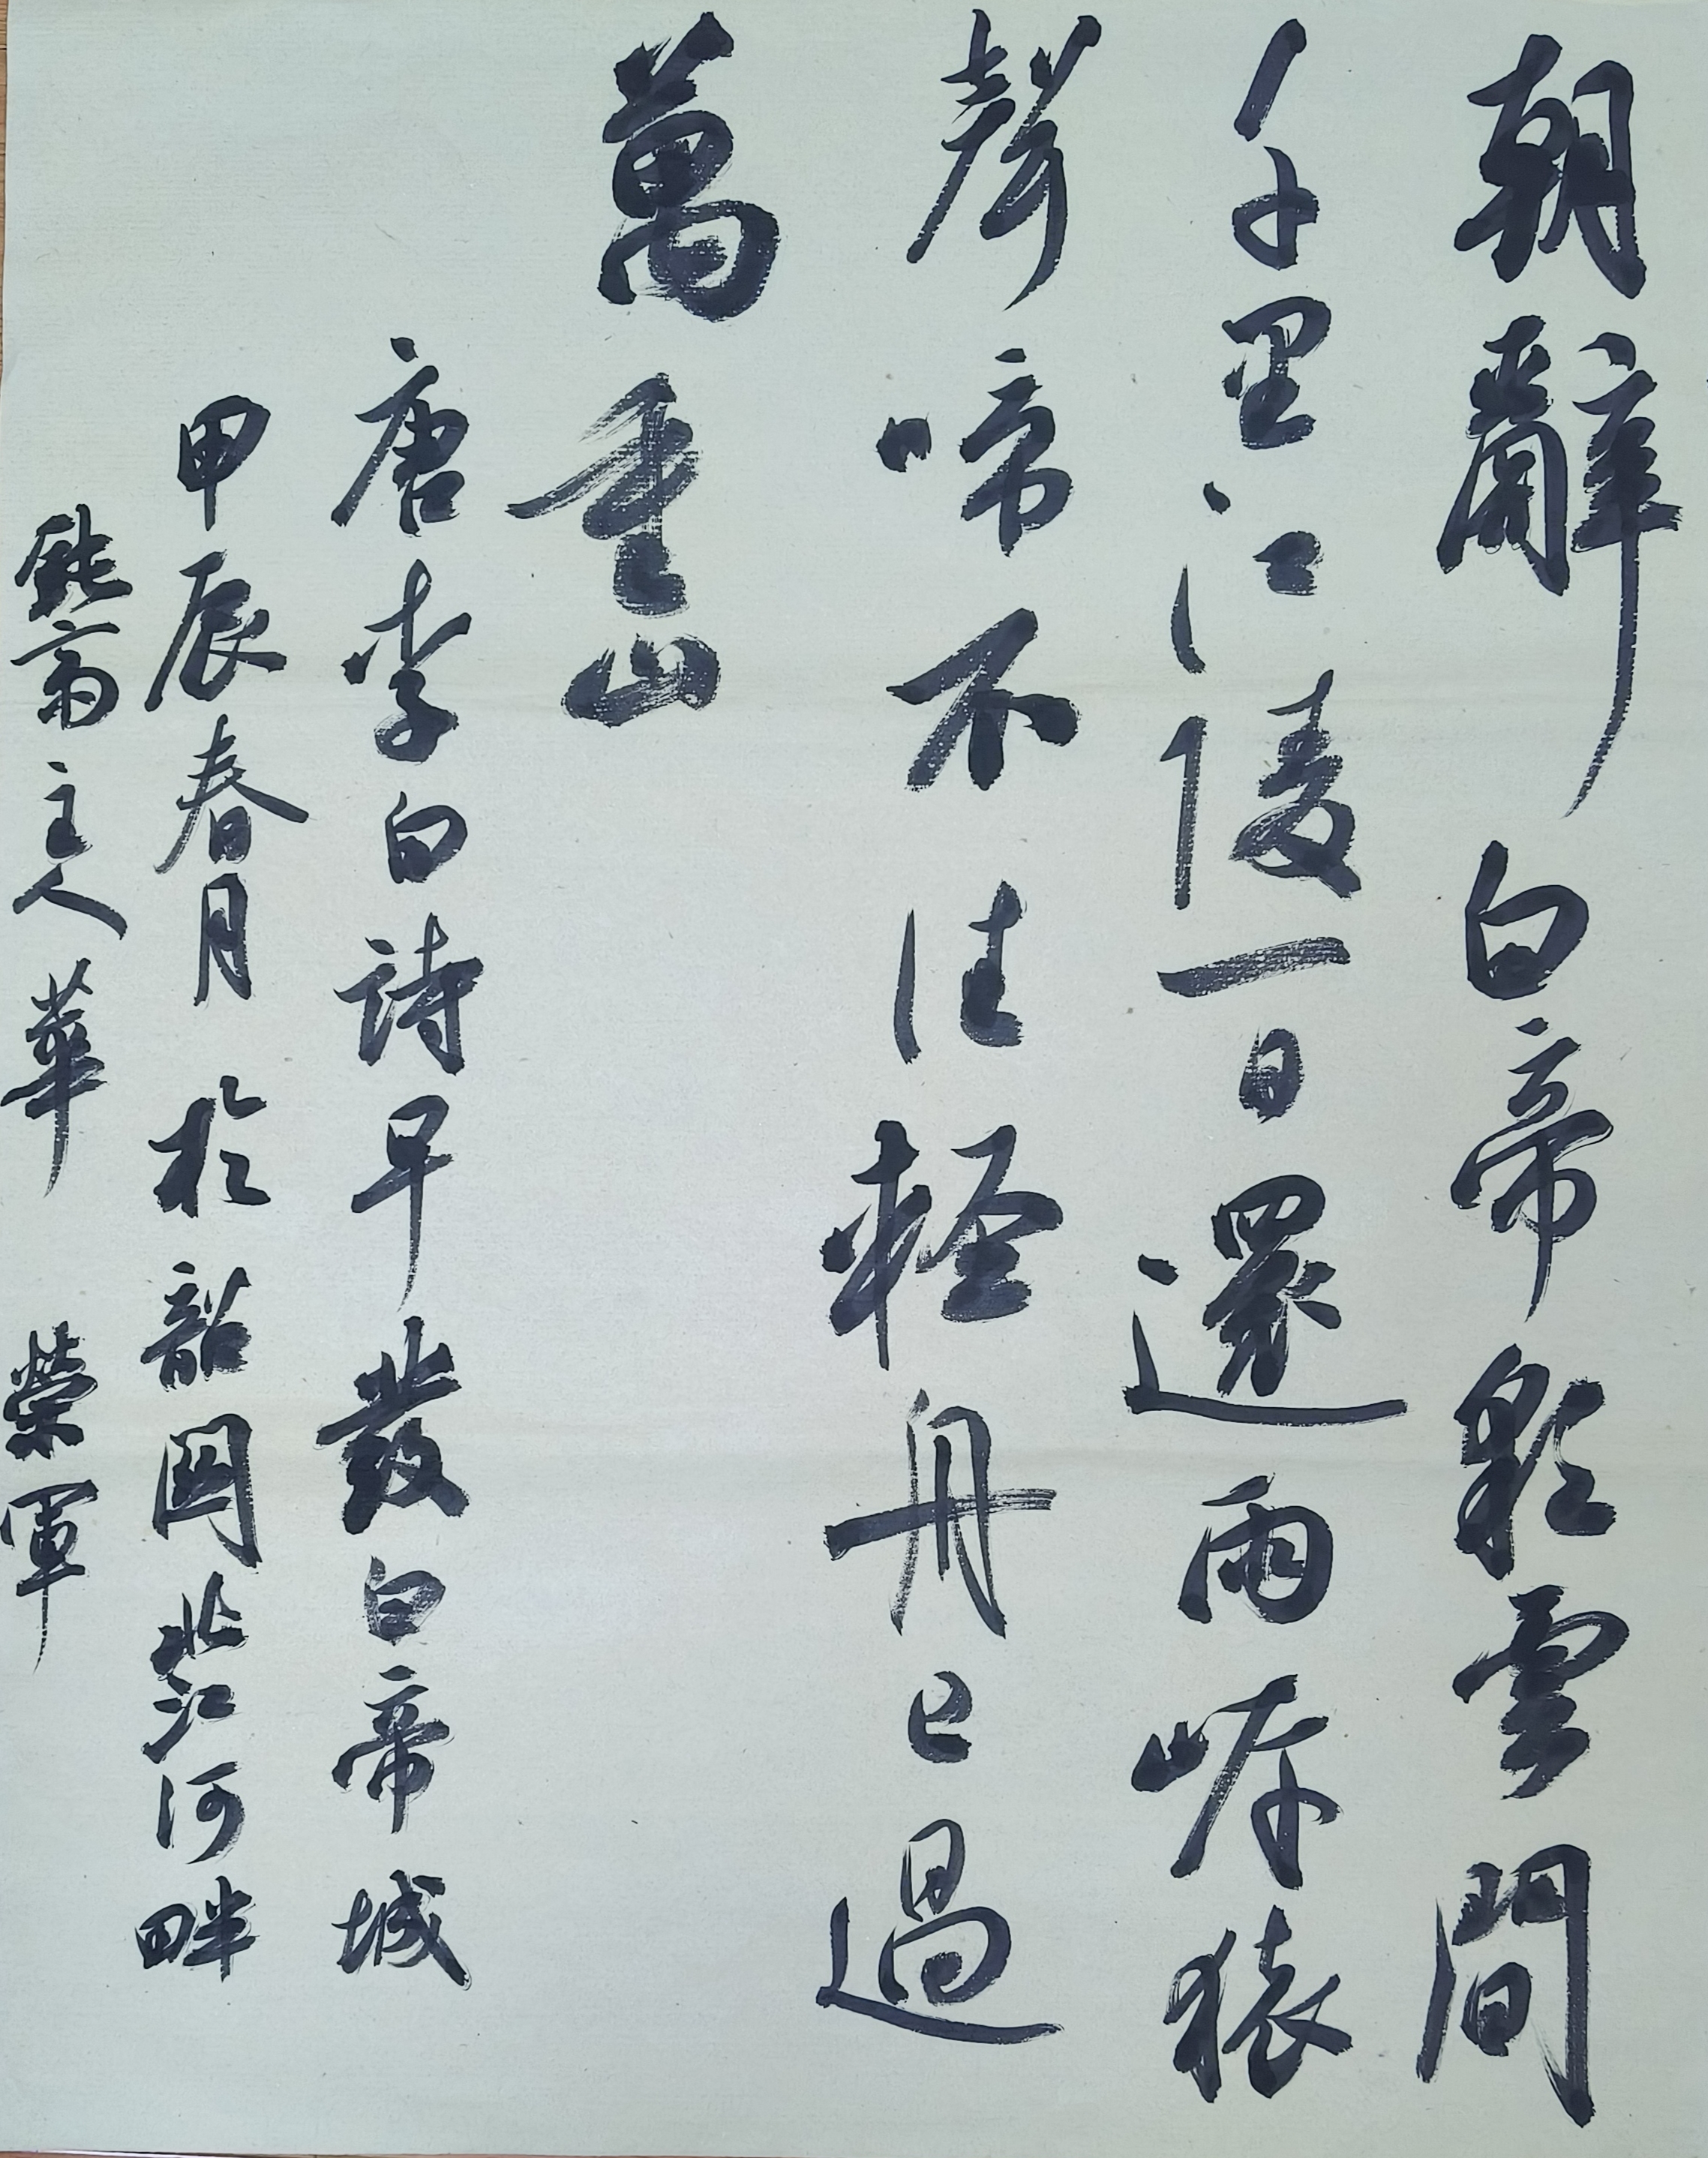 朝辭白帝彩雲間
千里江陵一日還兩岸猿
聲啼不住輕舟已過
萬重山
唐李白詩早發白帝城
甲辰春月於韶關北江河畔
齋主人華榮軍